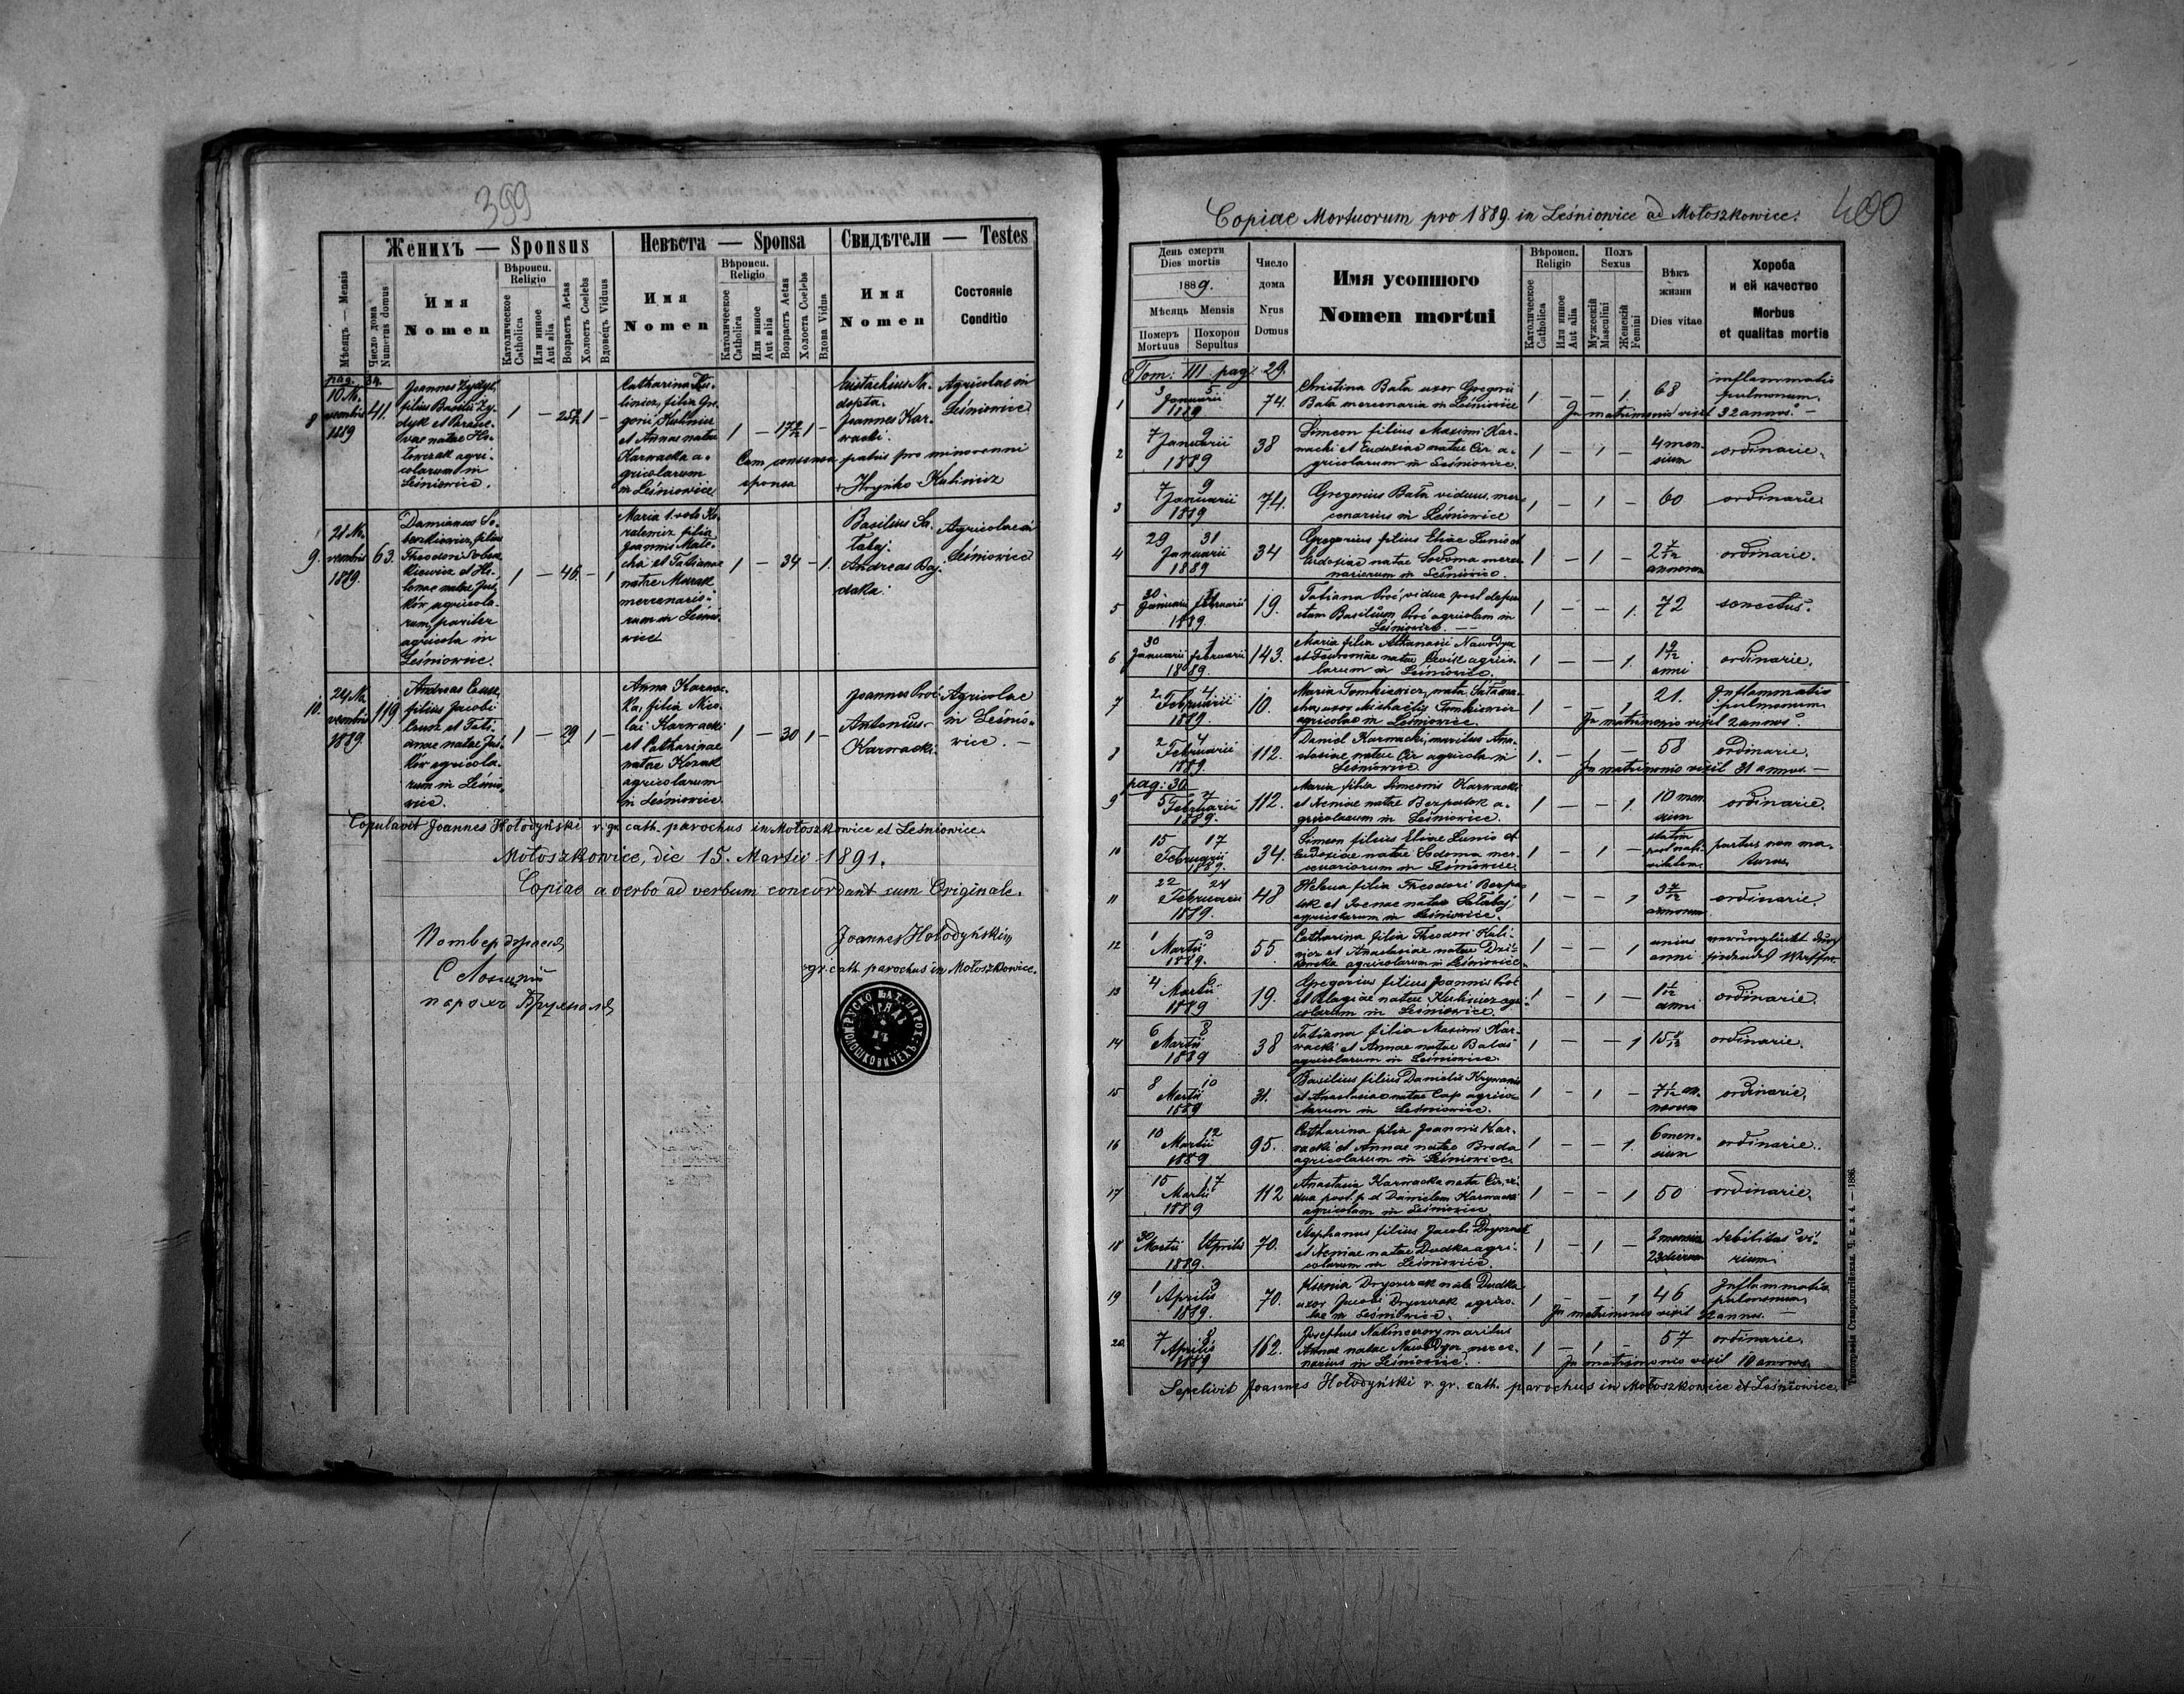 399
Женихъ — Sponsus
Невѣста — Sponsa
Свидѣтели — Testes
Мѣсяць — Mensis
Число дома
Numerus domus
Имя
Nomen
Вѣроисп.
Religio
Католическое
Catholica
Или инное
Aut alia
Возрастъ Aetas
Холостъ Coelebs
Вдовецъ Viduus
Имя
Nomen
Вѣроисп.
Religio
Католическое
Catholica
Или инное
Aut alia
Возрастъ Aetas
Холоста Coelebs
Вдова Vidua
Имя
Nomen
Состояніе
Conditio
pag. 34.
8
10 No-
vembris
1889
41.
Joannes Żydyk,
filius Basilii Ży-
dyk et Parasce-
vae natae
agri-
colarum in
Leśniowice.
1 — 1 —
Catharina Ku-
linicz, filia Gre-
gorii Kulinicz
et Annae natae
Karwacka a-
gricolarum
in Leśniowice
1 — 1 —
Eustachius Na-
Joannes Kar-
wacki.
Agricolae in
Leśniowice
Cum consensu patris pro minorenni
sponsa + Hryńko Kulinicz
9.
21 No-
vembris
1889.
63.
Damianus So-
beszkiewicz, filius
Theodori Sobesz-
kiewicz et He-
lenae natae
agricola-
rum, pariter
agricola in
Leśniowice.
1 — 46 — 1
Maria 1. voto
filia
Joannis
et Tatianae
natae
mercenario-
rum in Leśnio-
wice
1 — 34 — 1.
Basilius Sa-
łabaj.
Andreas Baj-
daka.
Agricolae in
Leśniowice
10.
24 No-
vembris
1889.
119
Andreas
filius Jacobi
et Tati-
anae natae
agricola-
rum in Leśnio-
wice.
1 — 29 1 —
Anna Karwac-
ka, filia Nico-
lai Karwacki
et Catharinae
natae Kozak
agricolarum
in Leśniowice
1 — 30 1 —
Joannes Proć
Antonius
Karwacki.
Agricolae
in Leśnio-
wice. —
Copulavit Joannes Hołodyński r. gr. cath. parochus in Mołoszkowice et Leśniowice.
Mołoszkowice, die 15. Martii 1891.
Copiae a verbo ad verbum concordant cum Originale.
Joannes Hołodyński
gr. cath. parochus in Mołoszkowice.
Copiae Mortuorum pro 1889. in Leśniowice ad Mołoszkowice.
400
День смерти
Dies mortis
1889.
Мѣсяць Mensis
Померъ
Mortuus
Похорон
Sepultus
Число
дома
Nrus
Domus
Имя усопшого
Nomen mortui
Вѣроисп.
Religio
Католическое
Catholica
Или инное
Aut alia
Полъ
Sexus
Мужескій
Masculini
Женскій
Femini
Вѣкъ
жизни
Dies vitae
Хороба
и ей качество
Morbus
et qualitas mortis
Tom: III pag. 29.
1
3 5
Januarii
1889
74.
Christina Bała uxor Gregorii
Bała mercenaria in Leśniowice
1 — — 1.
68
inflammatio
pulmonum.
In matrimonio vixit 32 annos. —
2
7 9
Januarii
1889
38
Simeon filius Maximi Kar-
wacki et Eudoxiae natae Cir a-
gricolarum in Leśniowice.
1 — 1 —
4 men-
sium
ordinarie.
3
7 9
Januarii
1889
74.
Gregorius Bała viduus, mer-
cenarius in Leśniowice
1 — 1 —
60
ordinarie
4
29 31
Januarii
1889
34
Gregorius filius Eliae Lunio et
Eudoxiae natae Sodoma merce-
nariorum in Leśniowice.
1 — 1 —
2 7/12
annorum
ordinarie.
5
30 1
Januarii Februarii
1889.
19.
Tatiana Proć, vidua post defun-
ctum Basilium Proć agricolam in
Leśniowice. —
1 — — 1.
72
senectus.
6
30 1
Januarii Februarii
1889.
143.
Maria filia Athanasii Nawodyor
et natae agrico-
larum in Leśniowice.
1 — — 1.
anni
ordinarie.
7
2 4
Februarii
1889.
10.
Maria Tomkiewicz, nata
uxor Michaëlis Tomkiewicz
agricolae in Leśniowice.
1 — — 1
21.
Inflammatio
pulmonum
In matrimonio vixit 2 annos.
8
2 4
Februarii
1889.
112.
Daniel Karwacki, maritus Ana-
stasiae natae Cir agricola in
Leśniowice.
1. — 1 —
58
ordinarie.
In matrimonio vixit 31 annos. —
pag: 30.
9
5 7
Februarii
1889.
112.
Maria filia Simeonis Karwacki
et Xeniae natae Bezpalok a-
gricolarum in Leśniowice.
1 — — 1.
10 men-
sium
ordinarie.
10
15 17
Februarii
1889.
34.
Simeon filius Eliae Lunio et
Eudoxiae natae Sodoma mer-
cenariorum in Leśniowice.
1 — 1 —
statim
post nati-
vitatem.
partus non ma-
turus.
11
22 24
Februarii
1889.
48
Helena filia Theodori Bezpa-
lok et Irenae natae Sałabaj
agricolarum in Leśniowice.
1 — — 1
3 7/12
annorum
ordinarie.
12
1 3
Martii
1889.
55.
Catharina filia Theodori Kuli-
nicz et Anastasiae natae
agricolarum in Leśniowice.
1 — — 1
unius
anni
verunglückt durch
siedendes Wasser.
13
4 6
Martii
1889
19.
Gregorius filius Joannis Proć
et Pelagiae natae Kulinicz agri-
colarum in Leśniowice.
1 — 1 —
anni
ordinarie.
14
6 8
Martii
1889
38
Tatiana filia Maximi Kar-
wacki et Annae natae Balaś
agricolarum in Leśniowice.
1 — — 1
ordinarie.
15
8 10
Martii
1889
31.
Basilius filius Danielis
et Anastasiae natae Cap agrico-
larum in Leśniowice.
1 — 1 —
7 1/12 an-
norum
ordinarie.
16
10 12
Martii
1889
95.
Catharina filia Joannis Kar-
wacki et Annae natae Broda
agricolarum in Leśniowice.
1 — — 1.
6 men-
sium
ordinarie.
17
15 17
Martii
1889
112
Anastasia Karwacka nata Cir, vi-
dua post p. d. Danielem Karwacki
agricolam in Leśniowice
1 — — 1
50
ordinarie.
18
30 1
Martii Aprilis
1889.
70.
Stephanus filius Jacobi Dryszczak
et Xeniae natae Dudka agri-
colarum in Leśniowice.
1 — 1 —
2 mensium
23 dierum
debilitas vi-
rium.
19
1 3
Aprilis
1889.
70.
Xenia Dryszczak nata Dudka
uxor Jacobi Dryszczak agrico-
lae in Leśniowice.
1 — — 1
46
Inflammatio
pulmonum.
In matrimonio vixit annos. —
20
7 8
Aprilis
1889
162.
Josephus maritus
Annae natae Nawodyor merce-
narius in Leśniowice.
1 — 1 —
57
ordinarie.
In matrimonio vixit 10 annos.
Sepelivit Joannes Hołodyński r. gr. cath. parochus in Mołoszkowice et Leśniowice.
Типографія Ставропигійская. Ч. к. з. 4. — 1886.